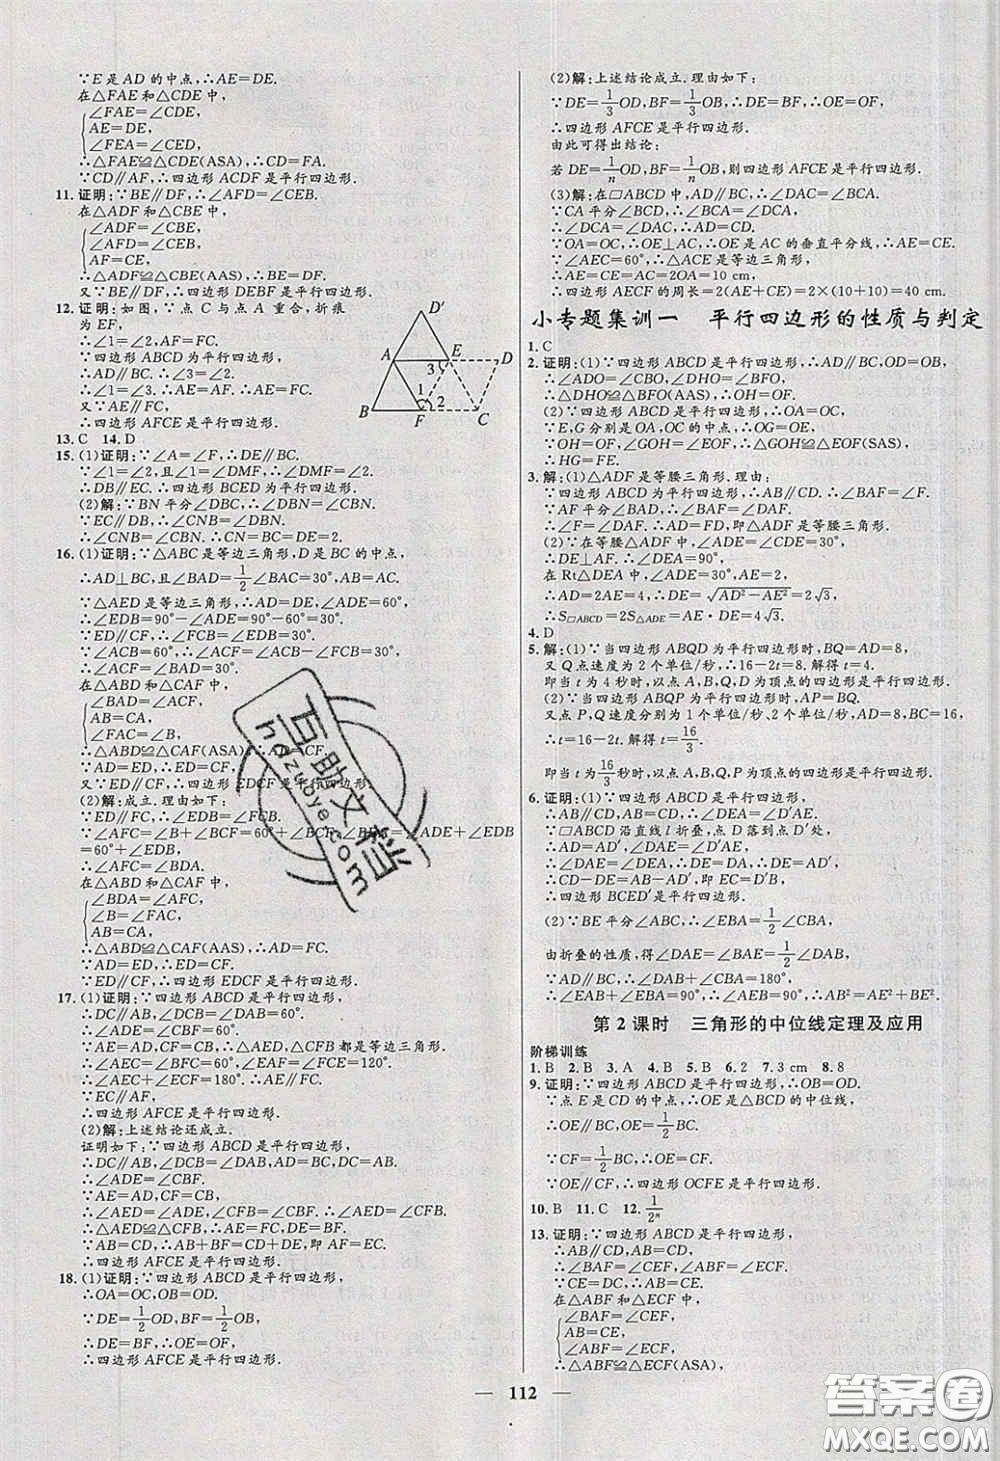 ∵E是AD的中点,∴AE=DE.
在△FAE和△CDE中,
∠FAE=∠CDE,
AE=DE,
∠FEA=∠CED,
∴△FAE≌△CDE(ASA),∴CD=FA.
∵CD∥FA,∴四边形ACDF是平行四边形.
11.证明:∵BE∥DF,∴∠AFD=∠CEB.
在△ADF和△CBE中,
∠ADF=∠CBE,
∠AFD=∠CEB,
AF=CE,
∴△ADF≌△CBE(AAS),∴BE=DF.
又∵BE∥DF,∴四边形DEBF是平行四边形.
12.证明:如图,∵点C与点A重合,折痕
为EF,
∴∠1=∠2,AF=FC.
∵四边形ABCD为平行四边形,
∴AD∥BC.∴∠3=∠2.
∴∠1=∠3.∴AE=AF.∴AE=FC.
又∵AE∥FC,
∴四边形AFCE是平行四边形.
D′
A E D
3
1
2
B F C
13.C 14.D
15.(1)证明:∵∠A=∠F,∴DE∥BC.
∵∠1=∠2,且∠1=∠DMF,∴∠DMF=∠2.
∴DB∥EC.∴四边形BCED为平行四边形.
(2)解:∵BN平分∠DBC,∴∠DBN=∠CBN.
∵EC∥DB,∴∠CNB=∠DBN.
∴∠CNB=∠CBN.∴CN=BC=DE=2.
16.(1)证明:∵△ABC是等边三角形,D是BC的中点,
∴AD⊥BC,且∠BAD=1/2∠BAC=30°.
∵△AED是等边三角形,∴AD=AE,∠ADE=60°,
∴∠EDB=90°-∠ADE=90°-60°=30°.
∵ED∥CF,∴∠FCB=∠EDB=30°.
∵∠ACB=60°,∴∠ACF=∠ACB-∠FCB=30°,
∴∠ACF=∠BAD=30°.
在△ABD和△CAF中,
∠BAD=∠ACF,
AB=CA,
∠FAC=∠B,
∴△ABD≌△CAF(ASA),∴AD=CF.
∵AD=ED,∴ED=CF.
又∵ED∥CF,∴四边形EDCF是平行四边形.
(2)解:成立.理由如下:
∵ED∥FC,∴∠EDB=∠FCB.
∵∠AFC=∠B+∠BCF=60°+∠BCF,∠BDA=∠ADE+∠EDB
=60°+∠EDB,
∴∠AFC=∠BDA.
在△ABD和△CAF中,
∠BDA=∠AFC,
∠B=∠FAC,
AB=CA,
∴△ABD≌△CAF(AAS),∴AD=FC.
∵AD=ED,∴ED=CF.
又∵ED∥CF,∴四边形EDCF是平行四边形.
17.(1)证明:∵四边形ABCD是平行四边形,
∴DC∥AB,∠DCB=∠DAB=60°.
∴∠ADE=∠CBF=60°.
∵AE=AD,CF=CB,∴△AED,△CFB都是等边三角形.
∴∠AEC=∠BFC=60°,∠EAF=120°.
∴∠AEC+∠EAF=180°.∴CE∥AF.
∵EC∥AF,
∴四边形AFCE是平行四边形.
(2)解:上述结论还成立.
证明如下:∵四边形ABCD是平行四边形,
∴DC∥AB,∠CDA=∠CBA,AD=BC,DC=AB.
∴∠ADE=∠CBF.
∵AE=AD,CF=CB,
∴∠AED=∠ADE,∠CFB=∠CBF,∴∠AED=∠CFB.
又∵AD=BC,∴△ADE≌△CBF(AAS),∴ED=FB.
∵AB=CD,∴AB+BF=CD+DE,即AF=EC.
又∵AF∥EC,∴四边形AFCE是平行四边形.
18.(1)证明:∵四边形ABCD是平行四边形,
∴OA=OC,OB=OD.
∵DE=1/2OD,BF=1/2OB,
∴DE=BF,∴OE=OF,
∴四边形AFCE是平行四边形.
(2)解:上述结论成立.理由如下:
∵DE=1/3OD,BF=1/3OB,∴DE=BF,∴OE=OF,
∴四边形AFCE是平行四边形.
由此可得出结论:
若DE=1/nOD,BF=1/nOB,则四边形AFCE是平行四边形.
(3)解:在□ABCD中,AD∥BC,∴∠DAC=∠BCA.
∵CA平分∠BCD,∴∠BCA=∠DCA,
∴∠DCA=∠DAC,∴AD=CD.
∵OA=OC,∴OE⊥AC,∴OE是AC的垂直平分线,∴AE=CE.
∵∠AEC=60°,∴△ACE是等边三角形,
∴AE=CE=AC=2OA=10 cm,
∴四边形AECF的周长=2(AE+CE)=2×(10+10)=40 cm.
小专题集训一 平行四边形的性质与判定
1.C
2.证明:(1)∵四边形ABCD是平行四边形,∴AD∥BC,OD=OB,
∴∠ADO=∠CBO,∠DHO=∠BFO,
∴△DHO≌△BFO(AAS),∴OH=OF.
(2)∵四边形ABCD是平行四边形,∴OA=OC,
∵E,G分别是OA,OC的中点,∴OG=OE,
∵OH=OF,∠GOH=∠EOF,∴△GOH≌△EOF(SAS),
∴HG=FE.
3.解:(1)△ADF是等腰三角形.理由:
∵四边形ABCD为平行四边形,∴AB∥CD.∴∠BAF=∠F.
∵AF平分∠BAD,∴∠BAF=∠DAF.
∴∠F=∠DAF.∴AD=FD,即△ADF是等腰三角形.
(2)∵在等腰△ADF中,DE是中线,
∴DE⊥AF.∴∠DEA=90°.
在Rt△DEA中,∵∠DAE=30°,DE=2,
∴AD=2DE=4,∴AE=√AD²-DE²=2√3,
∴S□ABCD=2S△ADE=AE·DE=4√3.
4.D
5.解:(1)∵当四边形ABQD为平行四边形时,BQ=AD=8,
又Q点速度为2个单位/秒,∴16-2t=8.解得t=4.
即当t为4秒时,以点A,B,Q,D为顶点的四边形是平行四边形.
(2)∵当四边形ABQP为平行四边形时,AP=BQ.
又点P,Q速度分别为1个单位/秒、2个单位/秒,AD=8,BC=16,
∴t=16-2t.解得t=16/3.
即当t为16/3秒时,以点A,B,Q,P为顶点的四边形是平行四边形.
6.证明:(1)∵四边形ABCD是平行四边形,
∴AB∥CD,AB=CD.∴∠DEA=∠EAB.
∵□ABCD沿直线l折叠,点D落到点D′处,
∴AD=AD′,∠DAE=∠EAB.
∴∠DAE=∠DEA,∴DA=DE,∴DE=AD′.
∴CD-DE=AB-AD′,即EC=D′B.
∴四边形BCED′是平行四边形.
(2)∵BE平分∠ABC,∴∠EBA=1/2∠CBA,
由折叠的性质,得∠DAE=∠EAB=1/2∠DAB,
∵AD∥BC,∴∠DAB+∠CBA=180°,
∴∠EAB+∠EBA=90°,∴∠AEB=90°,∴AB²=AE²+BE².
第2课时 三角形的中位线定理及应用
阶梯训练
1.B 2.B 3.A 4.B 5.B 6.2 7.3 cm 8.8
9.证明:∵四边形ABCD是平行四边形,∴OB=OD.
∵点E是CD的中点,∴OE是△DBC的中位线,
∴OE∥BC,OE=1/2BC.
∵CF=1/2BC,∴OE=CF.
∵OE∥CF,∴四边形OCFE是平行四边形.
10.B 11.C 12.1/2ⁿ
13.证明:∵四边形ABCD是平行四边形,
∴AB∥CD,AB=CD,OA=OC,
∴∠BAF=∠CEF,∠ABF=∠ECF.
∵CE=DC,∴AB=CE.
在△ABF和△ECF中,
∠BAF=∠CEF,
AB=CE,
∠ABF=∠ECF,
∴△ABF≌△ECF(ASA),
112
百助文档
hdzuoye.com
答案圈
MXQE.COM